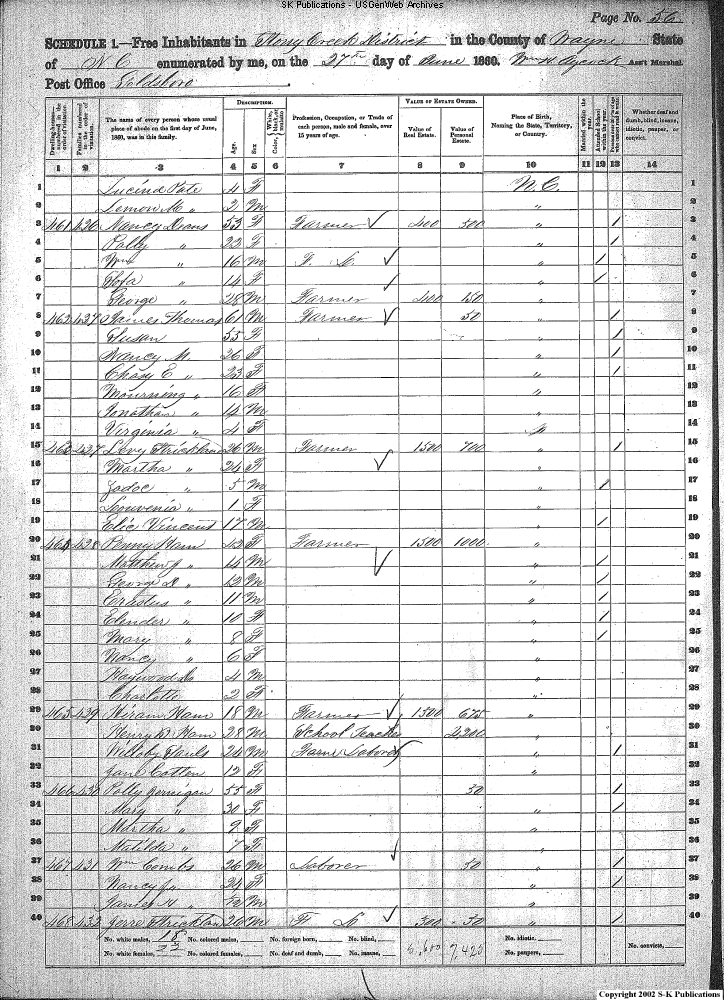 SK Publications - USGenWeb Archives
Page No. 56
SCHEDULE 1.—Free Inhabitants in Stony Creek District in the County of Wayne State
of N C enumerated by me, on the 27th day of June 1860. Wm H Aycock Ass't Marshal.
Post Office Goldsboro
Dwelling-houses—numbered in the order of visitation.
Families numbered in the order of visitation.
The name of every person whose usual place of abode on the first day of June, 1860, was in this family.
DESCRIPTION.
Age.
Sex.
Color, White, black, or mulatto.
Profession, Occupation, or Trade of each person, male and female, over 15 years of age.
VALUE OF ESTATE OWNED.
Value of Real Estate.
Value of Personal Estate.
Place of Birth, Naming the State, Territory, or Country.
Married within the year.
Attended School within the year.
Whether deaf and dumb, blind, insane, idiotic, pauper, or convict.
1 2 3 4 5 6 7 8 9 10 11 12 13 14
1 Lucind Pate 4 F N.C. 1
2 Lemon M " 2 M " 2
3 461 426 Nancy Deans 53 F Farmer ✓ 400 500 " / 3
4 Polly " 22 F " / 4
5 Wm " 16 M F. L ✓ " / 5
6 14 F ✓ " / 6
7 George " 28 M Farmer 400 150 " 7
8 462 427 James Thomas 61 M Farmer ✓ 50 " / 8
9 Susan 55 F " / 9
10 Nancy M. " 26 F " / 10
11 Chasy E " 23 F " / 11
12 Mourning " 16 F " 12
13 Jonathan " 14 M " 13
14 Virginia " 4 F " 14
15 463 427 Levy Strickland 36 M Farmer 1500 700 " / 15
16 Martha " 24 F ✓ " 16
17 Zadoc " 5 M " / 17
18 Louvenia " 1 F " 18
19 Elic Vincent 17 M " / 19
20 428 Penny Ham 43 F Farmer 1500 1000 " 20
21 Matthew J " 14 M ✓ " / 21
22 George D " 12 M " / 22
23 Erastus " 11 M " / 23
24 Elender " 10 F " / 24
25 Mary " 8 F " / 25
26 Nancy " 6 F " 26
27 Haywood " 4 M " 27
28 Charlotte 2 F " 28
29 465 429 Hiram Ham 18 M Farmer ✓ 1500 675 " 29
30 Henry B Ham 28 M School Teacher 4200 " 30
31 Willeby Sauls 24 M Farm Laborer ✓ " / 31
32 Jane Cotten 12 F " 32
33 466 430 Polly Jernigan 55 F 30 / 33
34 Mary " 30 F " / 34
35 Martha " 9 F " 35
36 Matilda " 7 F " 36
37 467 431 Wm Combs 26 M Laborer ✓ 50 " / 37
38 Nancy J " 24 F " / 38
39 M " 39
40 468 432 Jerre Strickland 26 M F L ✓ 300 50 " / 40
No. white males, 18 No. colored males, No. foreign born, No. blind, No. idiotic,
No. white females, 22 No. colored females, No. deaf and dumb, No. insane, 5,600 7,425 No. paupers, No. convicts,
Copyright 2002 S-K Publications